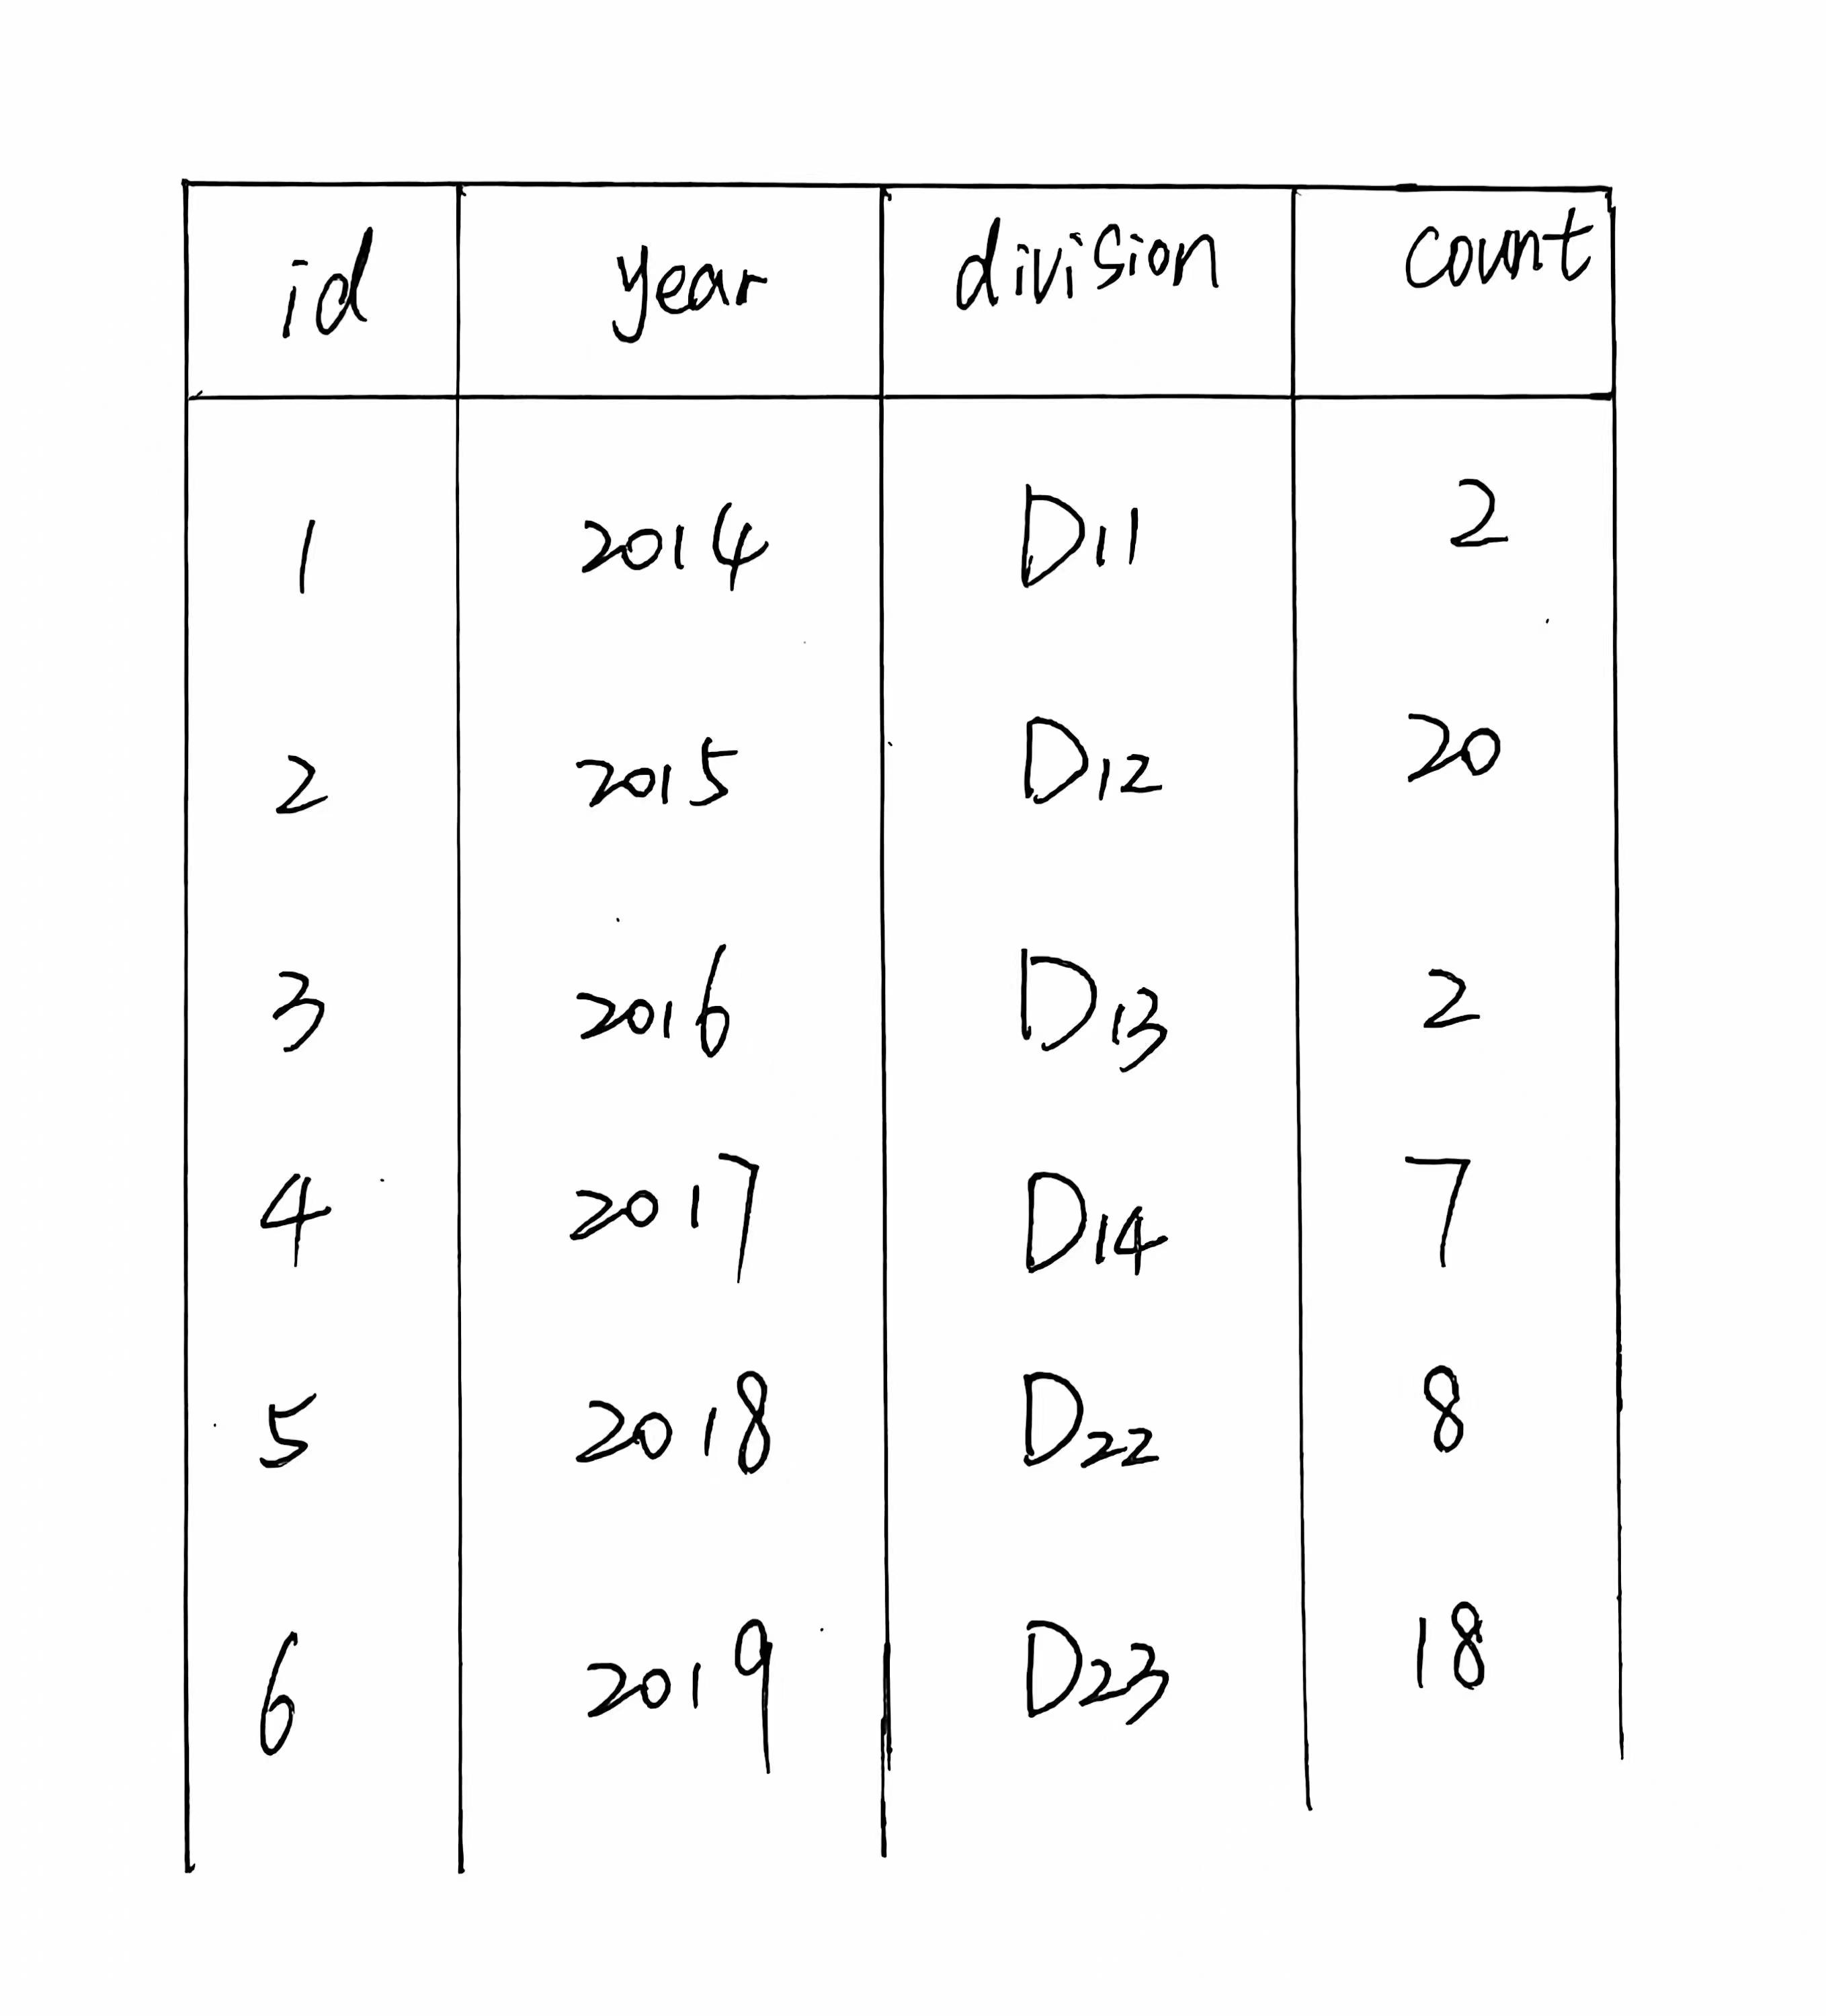 id year division count
1 2014 D11 2
2 2015 D12 20
3 2016 D13 2
4 2017 D14 7
5 2018 D22 8
6 2019 D23 18